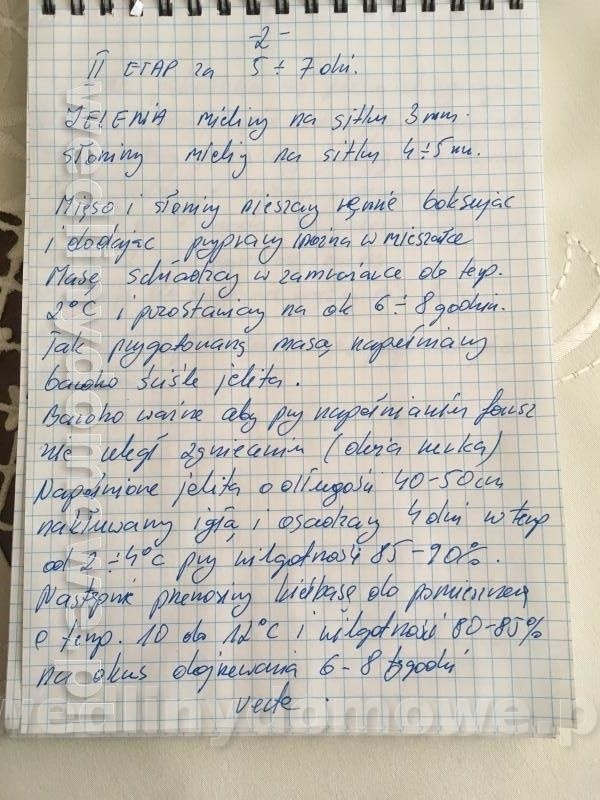 -2-
II ETAP za 5÷7 dni.
JELENIA mielimy na sitku 3mm.
słoniny mielimy na sitku 4÷5mm.
Mięso i słoniny mieszamy ręcznie boksując
i dodając przyprawy można w mieszałce
Masę schładzamy w zamrażarce do temp.
2°C i pozostawiamy na ok 6÷8 godzin.
Tak przygotowaną masą napełniamy
bardzo ściśle jelita.
Bardzo ważne aby przy napełnianiu farsz
nie uległ zgnieceniu (duża lufka)
Napełnione jelita o długości 40-50cm
nakłuwamy igłą i osadzamy 4 dni w temp
od 2÷4°C przy wilgotności 85-90%.
Następnie przenosimy kiełbasę do pomieszczenia
o temp. 10 do 12°C i wilgotności 80-85%
na okres dojrzewania 6-8 tygodni
verte
wedlinydomowe.pl
wedlinydomowe.p